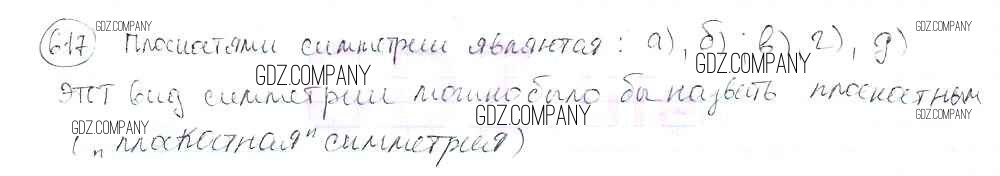 GDZ.COMPANY GDZ.COMPANY
617 Плоскостями симметрии являются: а), б), в), г), д)
GDZ.COMPANY GDZ.COMPANY
этот вид симметрии можно было бы назвать плоскостным
GDZ.COMPANY GDZ.COMPANY
("плоскостная" симметрия)